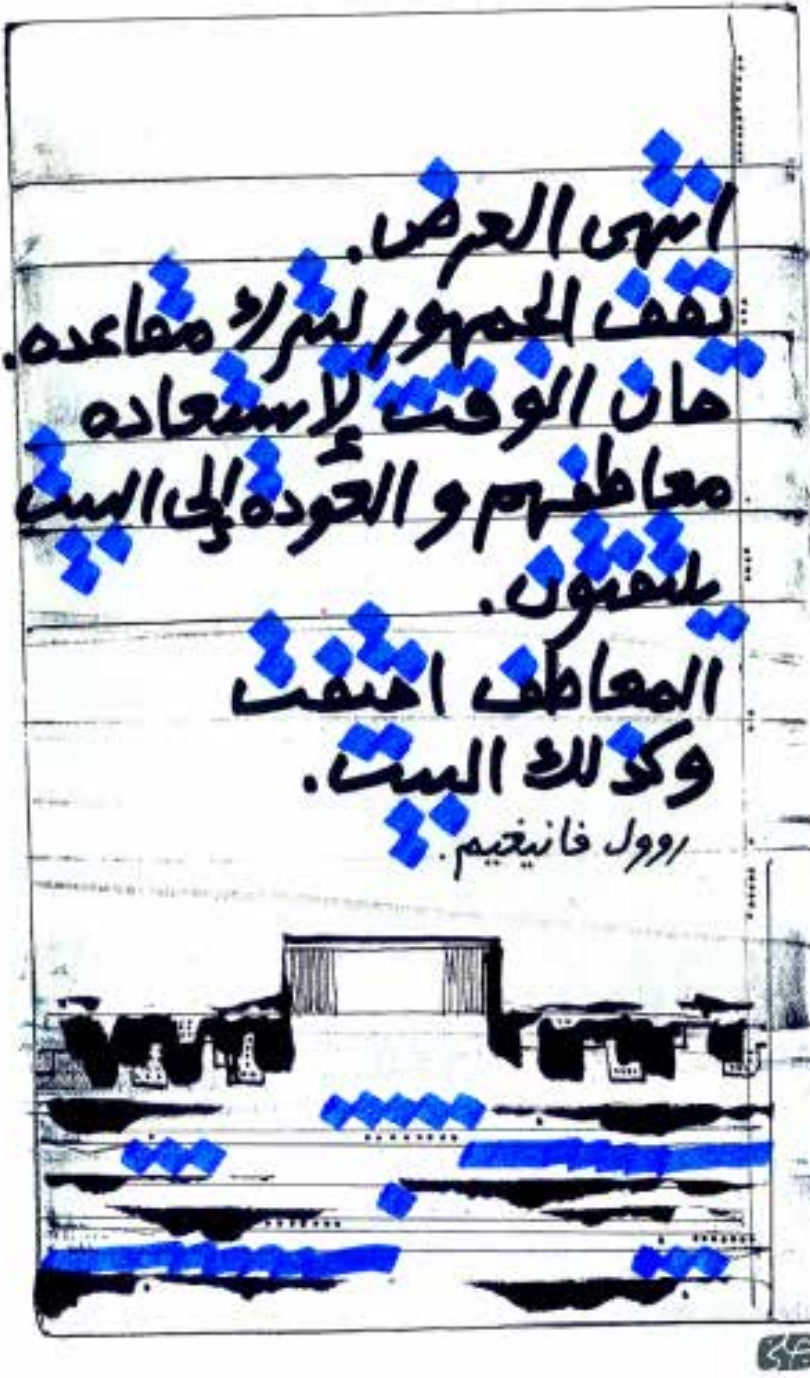 انتهى العرض.
تقف الجمهور ليترك مقاعده.
حان الوقت لإستعاده
معاطفهم و العودة إلى البيت
يلتفتون.
المعاطف اختفت
وكذلك البيت.
روول فانيغيم.